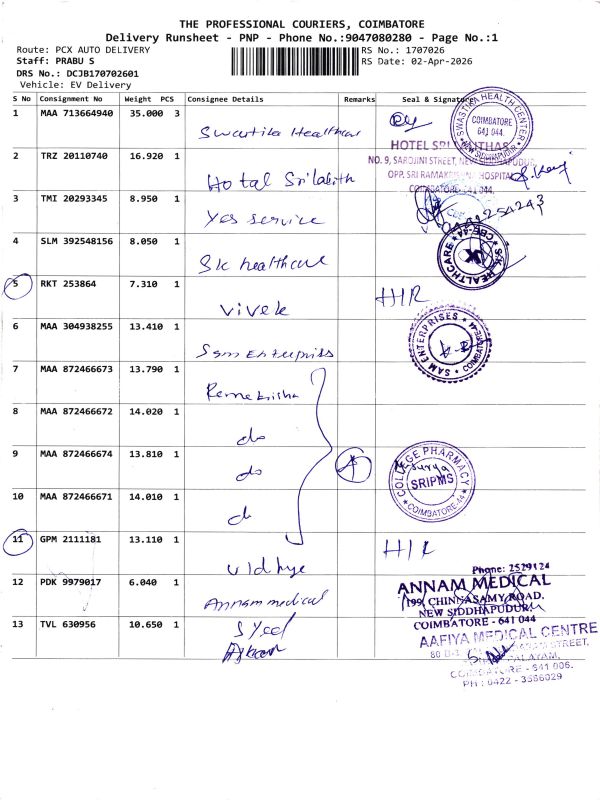 THE PROFESSIONAL COURIERS, COIMBATORE
Delivery Runsheet - PNP - Phone No.:9047080280 - Page No.:1
Route: PCX AUTO DELIVERY
Staff: PRABU S
DRS No.: DCJB170702601
Vehicle: EV Delivery
RS No.: 1707026
RS Date: 02-Apr-2026
S No Consignment No Weight PCS Consignee Details Remarks Seal & Signature
1 MAA 713664940 35.000 3 Swastika Healthcar
SWASTIKA HEALTH CENTER
COIMBATORE
641 044.
NEW SIDHAPUDUR
2 TRZ 20110740 16.920 1 Hotal Srilalith
HOTEL SRI LALITHAS
NO. 9, SAROJINI STREET, NEW SIDHAPUDUR
OPP. SRI RAMAKRISHNA HOSPITAL
COIMBATORE-641 044.
3 TMI 20293345 8.950 1 Yes service
4 SLM 392548156 8.050 1 Sk healthcare
S.K. HEALTHCARE CBE-44
5 RKT 253864 7.310 1 Vivek H/R
6 MAA 304938255 13.410 1 Sam Enterpriss
SAM ENTERPRISES
COIMBATORE-44
7 MAA 872466673 13.790 1
8 MAA 872466672 14.020 1 do
9 MAA 872466674 13.810 1 do
COLLEGE PHARMACY
Surya
SRIPMS
COIMBATORE-44
10 MAA 872466671 14.010 1 d
11 GPM 2111181 13.110 1 Vidhye H/R
12 PDK 9979017 6.040 1 Annam medical
Phone: 2529124
ANNAM MEDICAL
199, CHINNASAMY ROAD,
NEW SIDDHAPUDUR,
COIMBATORE - 641 044
13 TVL 630956 10.650 1 Syed
AAFIYA MEDICAL CENTRE
COIMBATORE - 641 006.
PH : 0422 - 3566029